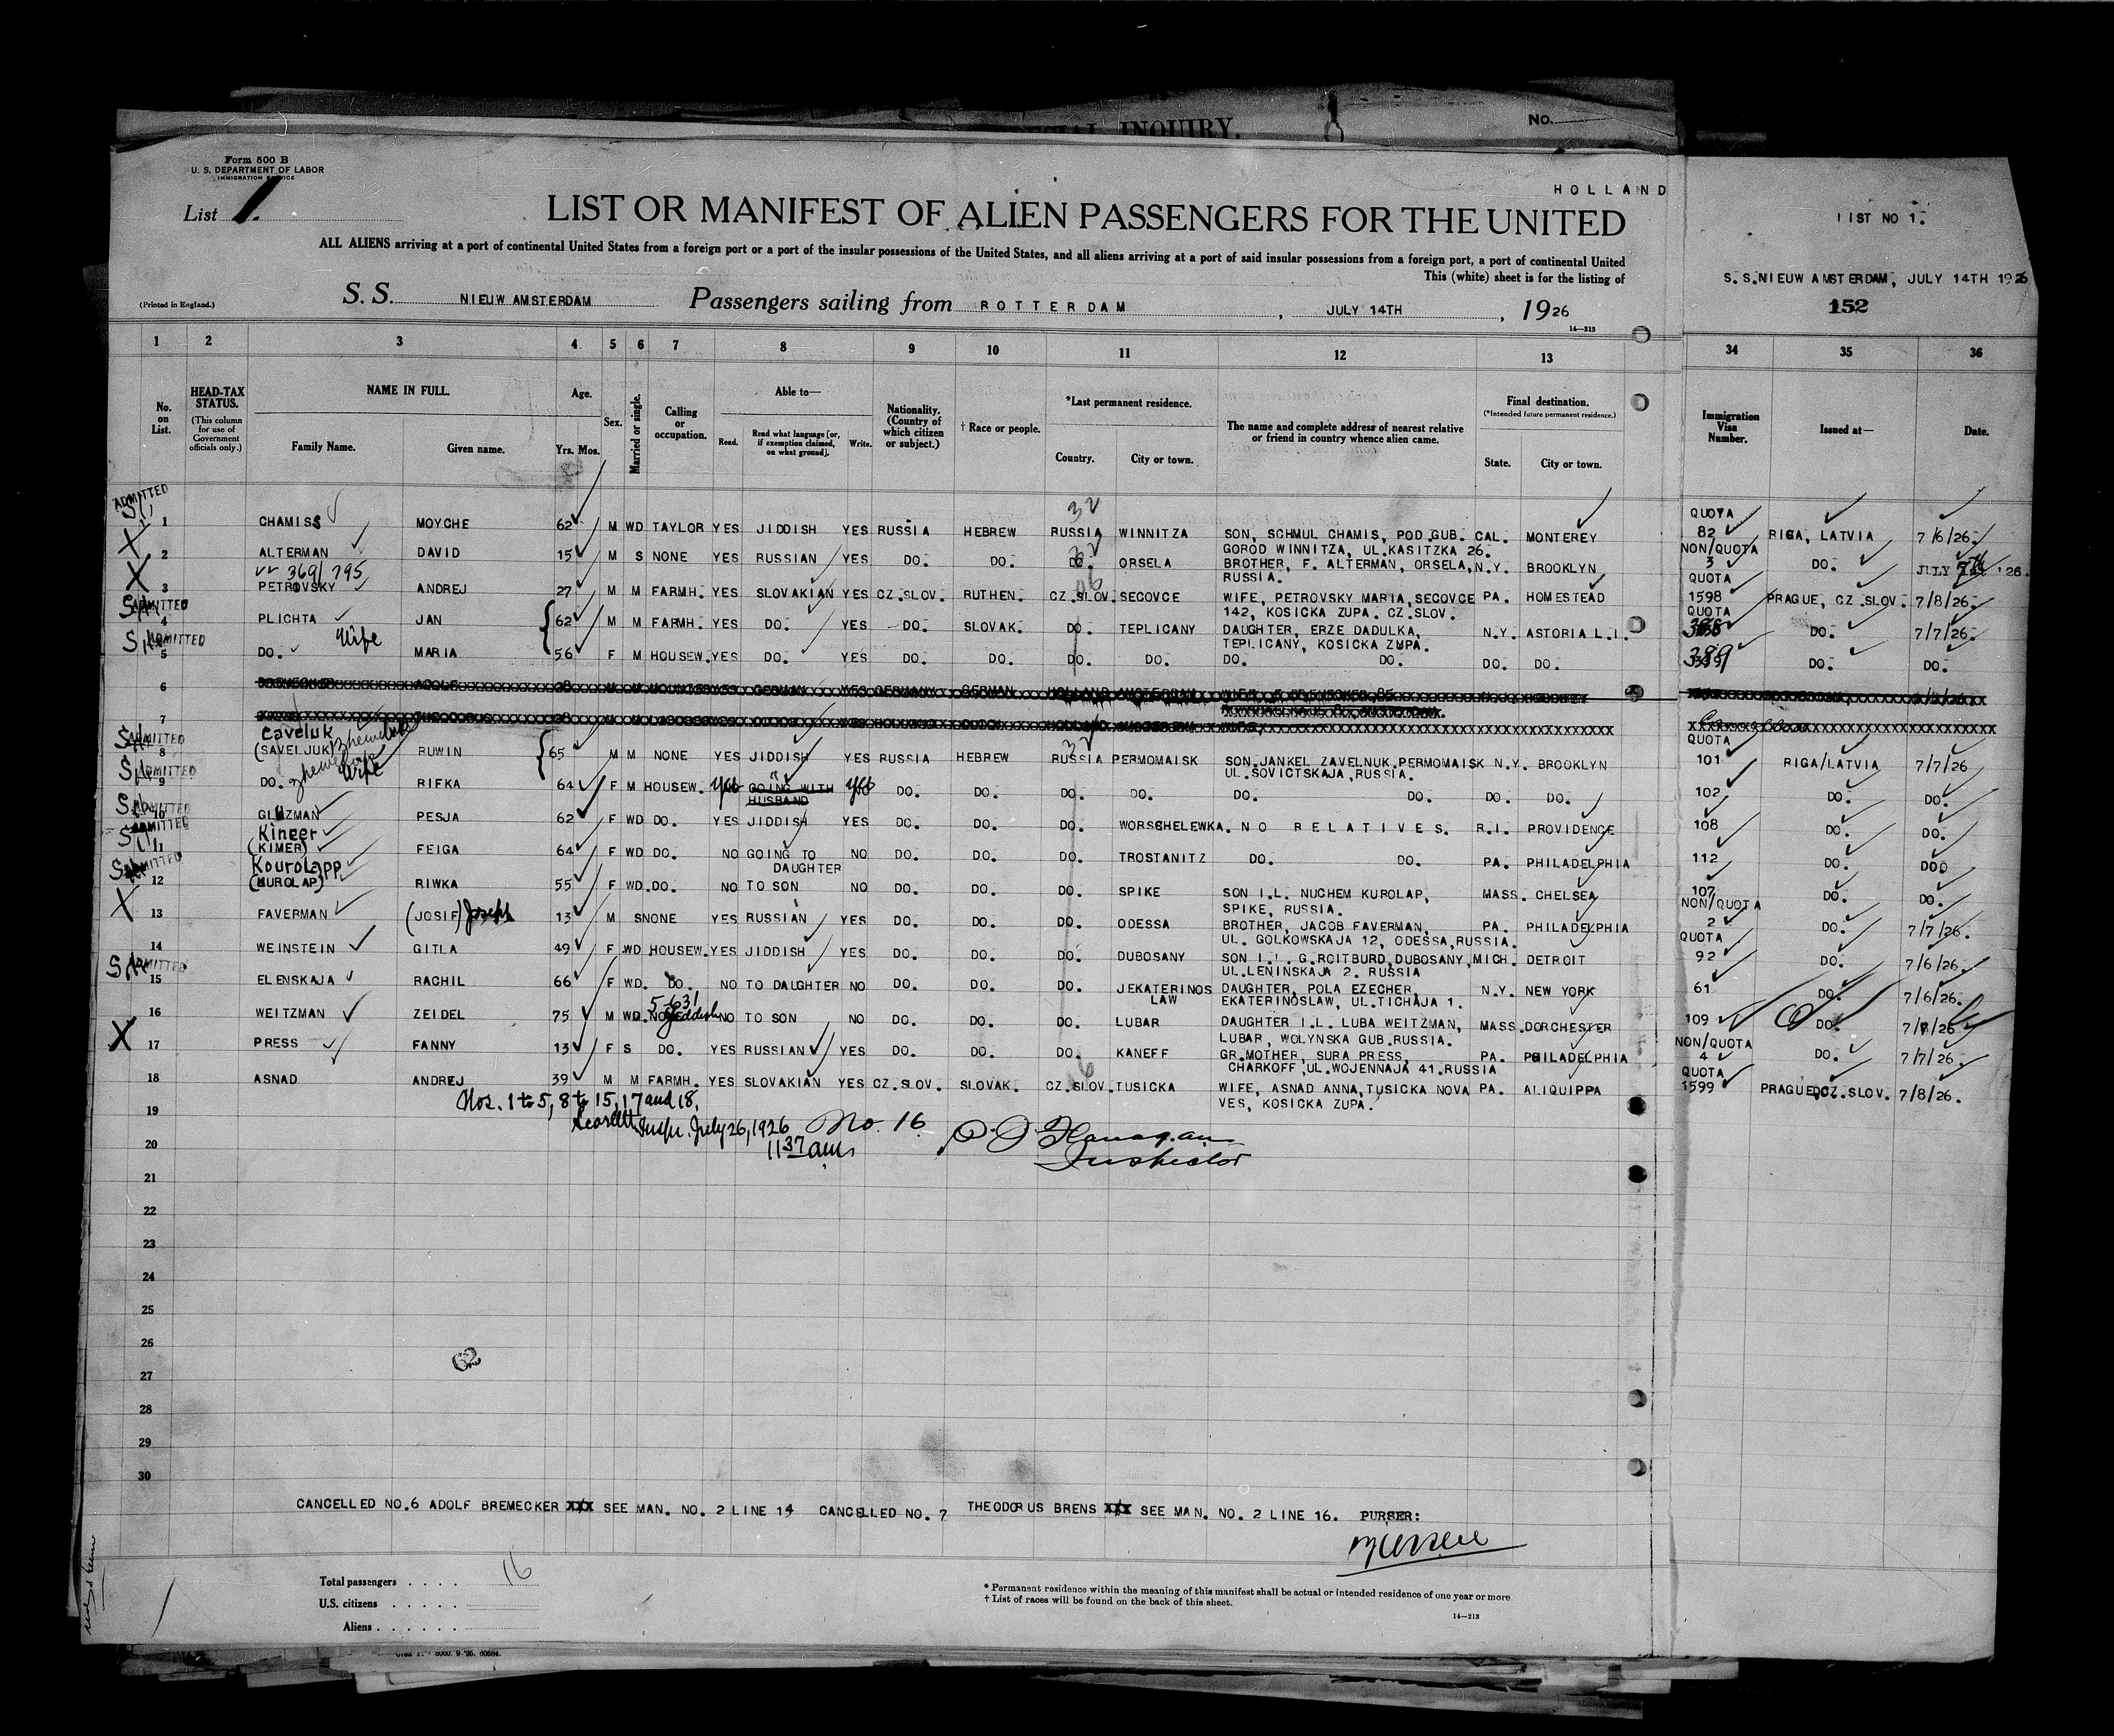 SPECIAL INQUIRY.
No.
Form 500 B
U. S. DEPARTMENT OF LABOR
IMMIGRATION SERVICE
HOLLAND
List 1.
LIST OR MANIFEST OF ALIEN PASSENGERS FOR THE UNITED
LIST NO 1.
ALL ALIENS arriving at a port of continental United States from a foreign port or a port of the insular possessions of the United States, and all aliens arriving at a port of said insular possessions from a foreign port, a port of continental United
This (white) sheet is for the listing of
(Printed in England.)
S. S. NIEUW AMSTERDAM Passengers sailing from ROTTERDAM, JULY 14TH, 1926
S.S.NIEUW AMSTERDAM, JULY 14TH 1926
152
14—213
1 2 3 4 5 6 7 8 9 10 11 12 13 34 35 36
No. on List.
HEAD-TAX STATUS.
(This column for use of Government officials only.)
NAME IN FULL.
Family Name. Given name.
Age.
Yrs. Mos.
Sex.
Married or single.
Calling or occupation.
Able to—
Read. Read what language [or, if exemption claimed, on what ground]. Write.
Nationality. (Country of which citizen or subject.)
† Race or people.
*Last permanent residence.
Country. City or town.
The name and complete address of nearest relative or friend in country whence alien came.
Final destination.
(*Intended future permanent residence.)
State. City or town.
Immigration Visa Number.
Issued at—
Date.
ADMITTED 32 QUOTA
1 CHAMISS MOYCHE 62 M WD TAYLOR YES JIDDISH YES RUSSIA HEBREW RUSSIA WINNITZA SON, SCHMUL CHAMIS, POD.GUB. CAL. MONTEREY 82 RIGA, LATVIA 7/6/26.
GOROD WINNITZA, UL.KASITZKA 26. NON/QUOTA
X 2 ALTERMAN DAVID 15 M S NONE YES RUSSIAN YES DO. DO. DO. ORSELA BROTHER, F. ALTERMAN, ORSELA, N.Y. BROOKLYN 3 DO. JULY '26.
369/795 RUSSIA. QUOTA
X 3 PETROVSKY ANDREJ 27 M M FARMH. YES SLOVAKIAN YES CZ.SLOV. RUTHEN. CZ.SLOV. SECOVCE WIFE, PETROVSKY MARIA, SECOVCE PA. HOMESTEAD 1598 PRAGUE, CZ.SLOV. 7/8/26.
ADMITTED 142, KOSICKA ZUPA. CZ.SLOV. QUOTA
4 PLICHTA JAN 62 M M FARMH. YES DO. YES DO. SLOVAK. DO. TEPLICANY DAUGHTER, ERZE DADULKA, N.Y. ASTORIA L.I. DO. 7/7/26.
ADMITTED Wife TEPLICANY, KOSICKA ZUPA.
5 DO. MARIA 56 F M HOUSEW. YES DO. YES DO. DO. DO. DO. DO. DO. DO. DO. 389 DO. DO.
6
7
Caveluk
QUOTA
ADMITTED 8 (SAVELJUK) RUWIN 65 M M NONE YES JIDDISH YES RUSSIA HEBREW RUSSIA PERMOMAISK SON.JANKEL ZAVELNUK.PERMOMAISK N.Y. BROOKLYN 101 RIGA/LATVIA 7/7/26
Wife UL.SOVICTSKAJA, RUSSIA.
ADMITTED 9 DO. RIFKA 64 F M HOUSEW. yes GOING WITH HUSBAND yes DO. DO. DO. DO. DO. DO. DO. DO. 102 DO. DO.
ADMITTED 10 GLUZMAN PESJA 62 F WD DO. YES JIDDISH YES DO. DO. DO. WORSCHELEWKA. NO RELATIVES. R.I. PROVIDENCE 108 DO. DO.
Kineer
ADMITTED 11 (KIMER) FEIGA 64 F WD DO. NO GOING TO DAUGHTER NO DO. DO. DO. TROSTANITZ DO. DO. PA. PHILADELPHIA 112 DO. DOO
Kourolapp
ADMITTED 12 (KUROLAP) RIWKA 55 F WD. DO. NO TO SON NO DO. DO. DO. SPIKE SON I.L. NUCHEM KUROLAP, MASS. CHELSEA 107 DO. DO.
SPIKE, RUSSIA. NON/QUOTA
X 13 FAVERMAN (JOSIF) Joseph 13 M S NONE YES RUSSIAN YES DO. DO. DO. ODESSA BROTHER, JACOB FAVERMAN, PA. PHILADELPHIA 2 DO. 7/7/26.
UL. GOLKOWSKAJA 12, ODESSA,RUSSIA. QUOTA
14 WEINSTEIN GITLA 49 F WD HOUSEW. YES JIDDISH YES DO. DO. DO. DUBOSANY SON I.L. G.ROITBURD,DUBOSANY, MICH. DETROIT 92 DO. 7/6/26.
ADMITTED UL.LENINSKAJA 2. RUSSIA
15 ELENSKAJA RACHIL 66 F WD. DO. NO TO DAUGHTER NO DO. DO. DO. JEKATERINOSLAW DAUGHTER, POLA EZECHER, N.Y. NEW YORK 61 DO. 7/6/26.
EKATERINOSLAW, UL.TICHAJA 1.
16 WEITZMAN ZEIDEL 75 M WD. NO TO SON NO DO. DO. DO. LUBAR DAUGHTER I.L. LUBA WEITZMAN, MASS. DORCHESTER 109 DO. 7/7/26
LUBAR, WOLYNSKA GUB.RUSSIA. NON/QUOTA
X 17 PRESS FANNY 13 F S DO. YES RUSSIAN YES DO. DO. DO. KANEFF GR.MOTHER, SURA PRESS, PA. PHILADELPHIA 4 DO. 7/7/26.
CHARKOFF,UL.WOJENNAJA 41.RUSSIA QUOTA
18 ASNAD ANDREJ 39 M M FARMH. YES SLOVAKIAN YES CZ.SLOV. SLOVAK. CZ.SLOV. TUSICKA WIFE, ASNAD ANNA,TUSICKA NOVA PA. ALIQUIPPA 1599 PRAGUE,CZ.SLOV. 7/8/26.
VES, KOSICKA ZUPA.
Nos. 1 to 5, 8 to 15, 17 and 18.
19
Inspr. July 26, 1926 No. 16 Flanagan
11 37 am Inspector
20
21
22
23
24
25
26
62
27
28
29
30
CANCELLED NO.6 ADOLF BREMECKER XXX SEE MAN. NO. 2 LINE 14 CANCELLED NO. 7 THEODORUS BRENS XXX SEE MAN. NO. 2 LINE 16. PURSER:
Total passengers . . . . 16
U.S. citizens . . . . .
Aliens . . . . . .
* Permanent residence within the meaning of this manifest shall be actual or intended residence of one year or more.
† List of races will be found on the back of this sheet.
14—213